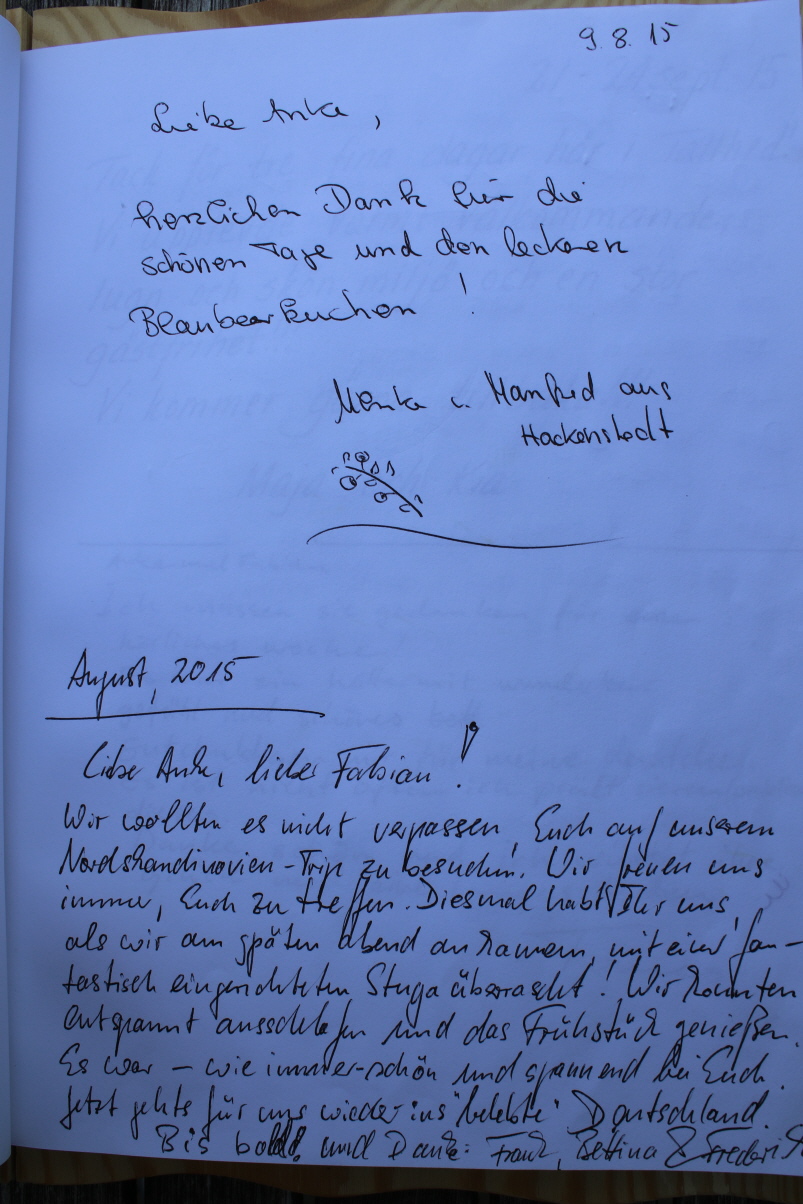 9.8.15
Liebe Anke,
herzlichen Dank für die
schönen Tage und den leckeren
Blaubeerkuchen!
Monika u. Manfred aus
Hackenstedt
August, 2015
Liebe Anke, lieber Fabian!
Wir wollten es nicht verpassen, Euch auf unserem
Nordskandinavien-Trip zu besuchen. Wir freuen uns
immer, Euch zu treffen. Diesmal habt Ihr uns,
als wir am späten Abend ankamen, mit einer fan-
tastisch eingerichteten Stuga überrascht! Wir konnten
entspannt ausschlafen und das Frühstück genießen.
Es war – wie immer – schön und spannend bei Euch.
Jetzt gehts für uns wieder ins "belebte" Deutschland.
Bis bald! und Danke: Frank, Bettina & Frederik